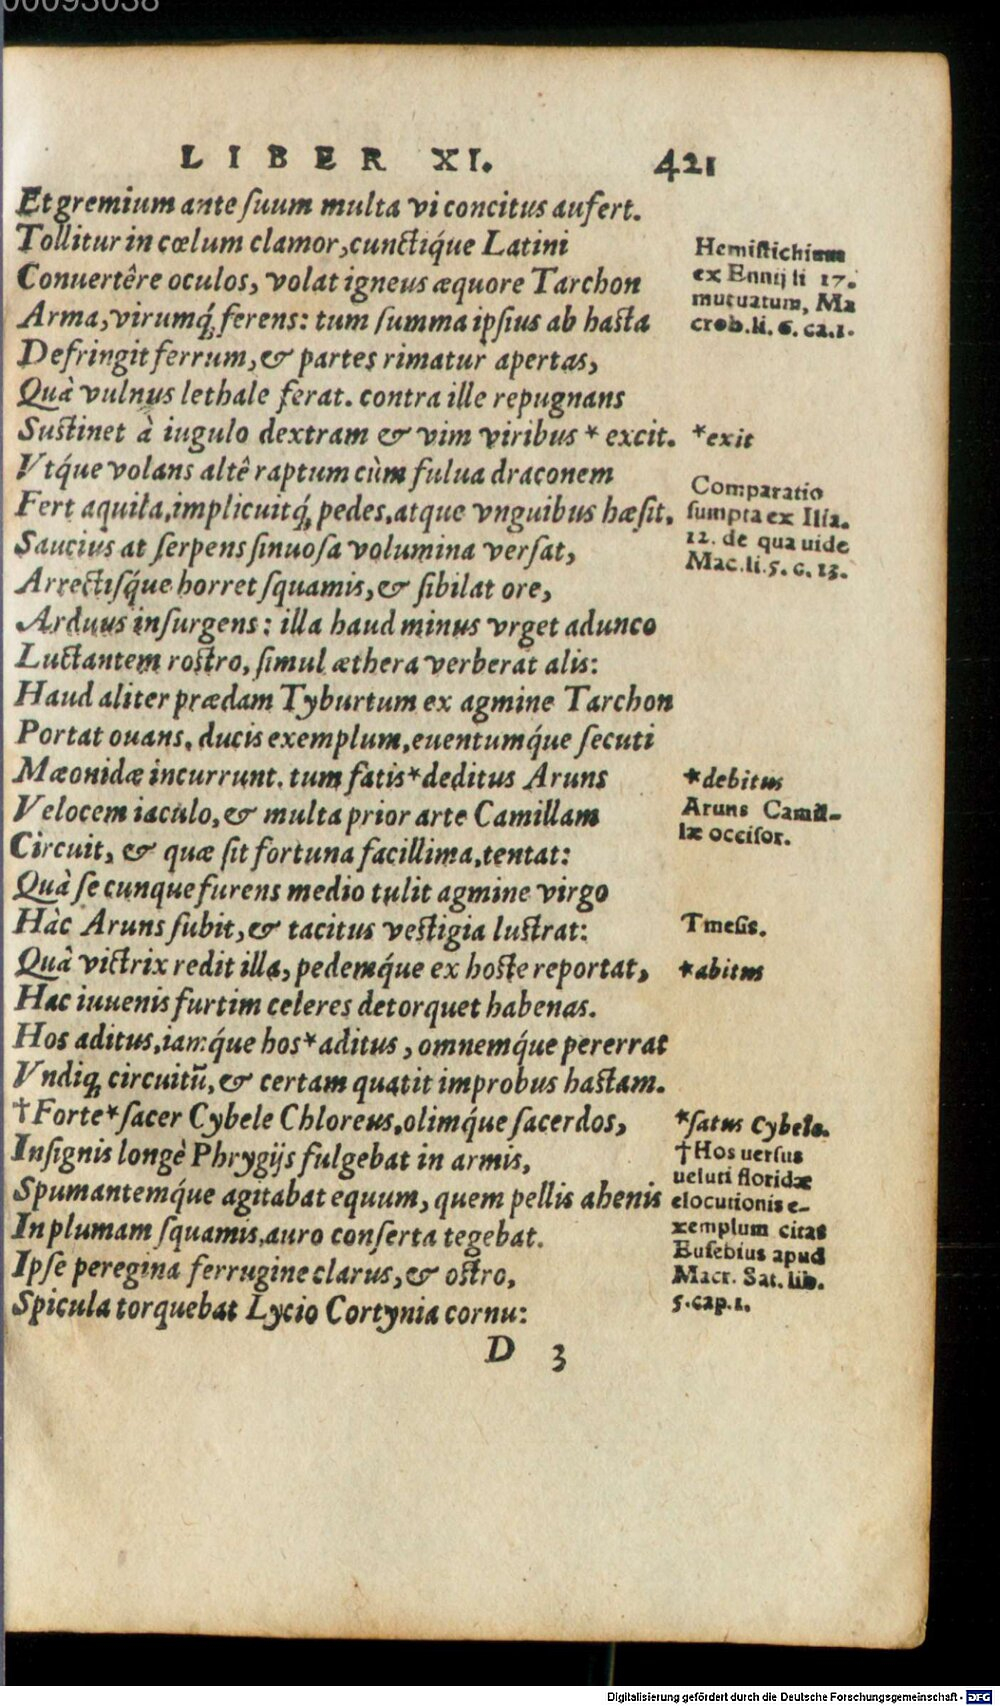 00093038
LIBER XI. 421
Et gremium ante ſuum multa vi concitus aufert.
Tollitur in cœlum clamor, cunctiq́ue Latini
Conuertêre oculos, volat igneus æquore Tarchon
Arma, virumq́; ferens: tum ſumma ipſius ab haſta
Defringit ferrum, & partes rimatur apertas,
Quà vulnus lethale ferat. contra ille repugnans
Suſtinet à iugulo dextram & vim viribus * excit.
Vtq́ue volans altê raptum cùm fulua draconem
Fert aquila, implicuitq́; pedes, atque vnguibus hæſit.
Saucius at ſerpens ſinuoſa volumina verſat,
Arrectiſq́ue horret ſquamis, & ſibilat ore,
Arduus inſurgens: illa haud minus vrget adunco
Luctantem roſtro, ſimul æthera verberat alis:
Haud aliter prædam Tyburtum ex agmine Tarchon
Portat ouans. ducis exemplum, euentumq́ue ſecuti
Mæonidæ incurrunt. tum fatis * deditus Aruns
Velocem iaculo, & multa prior arte Camillam
Circuit, & quæ ſit fortuna facillima, tentat:
Quà ſe cunque furens medio tulit agmine virgo
Hàc Aruns ſubit, & tacitus veſtigia luſtrat:
Quà victrix redit illa, pedemq́ue ex hoſte reportat,
Hac iuuenis furtim celeres detorquet habenas.
Hos aditus, iamq́ue hos * aditus, omnemq́ue pererrat
Vndiq; circuitũ, & certam quatit improbus haſtam.
† Forte * ſacer Cybele Chloreus, olimq́ue ſacerdos,
Inſignis longè Phrygijs fulgebat in armis,
Spumantemq́ue agitabat equum, quem pellis ahenis
In plumam ſquamis, auro conſerta tegebat.
Ipſe peregina ferrugine clarus, & oſtro,
Spicula torquebat Lycio Cortynia cornu:
D 3
Hemiſtichium
ex Ennij li 17.
mutuatum, Ma
crob. li. 6. ca. 1.
* exit
Comparatio
ſumpta ex Ilia.
12. de qua uide
Mac. li. 5. c. 13.
* debitus
Aruns Camil-
læ occiſor.
Tmeſis.
* abitus
* ſatus Cybele.
† Hos uerſus
ueluti floridæ
elocutionis e-
xemplum citat
Euſebius apud
Macr. Sat. lib.
5. cap. 1.
Digitalisierung gefördert durch die Deutsche Forschungsgemeinschaft - DFG